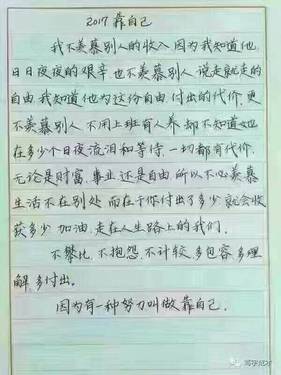 2017 靠自己
我不羡慕别人的收入 因为我知道他
日日夜夜的艰辛 也不羡慕别人 说走就走的
自由 我知道他为这份自由 付出的代价 更
不羡慕别人 不用上班有人养 却不知道她
在多少个日夜流泪和等待 一切都有代价
无论是财富 事业 还是自由 所以不必羡慕
生活不在别处 而在于你付出了多少 就会收
获多少 加油 走在人生路上的我们
不攀比 不抱怨 不计较 多包容 多理
解 多付出。
因为有一种努力叫做靠自己.